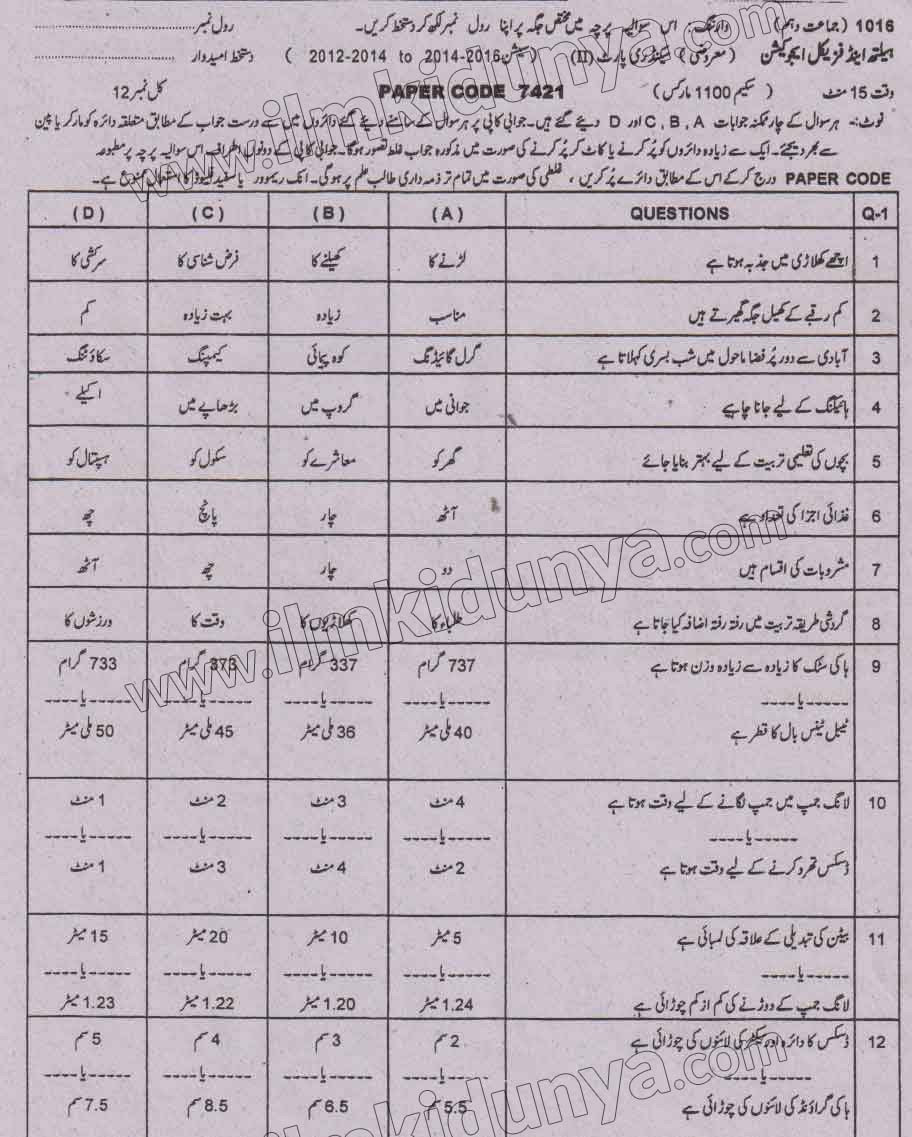 1016 (جماعت دہم) وارننگ: اس سوالیہ پرچہ میں مختص جگہ پر اپنا رول نمبر لکھ کر دستخط کریں۔ رول نمبر
ہیلتھ اینڈ فزیکل ایجوکیشن (معروضی) سیکنڈری پارٹ (II) (سیشن 2014-2016 to 2012-2014) دستخط امیدوار
وقت 15 منٹ (سکیم 1100 مارکس) PAPER CODE 7421 کل نمبر 12
نوٹ:- ہر سوال کے چار ممکنہ جوابات C, B, A اور D دیئے گئے ہیں۔ جوابی کاپی پر ہر سوال کے سامنے دیئے گئے دائروں میں سے درست جواب کے مطابق متعلقہ دائرہ کو مارکر یا پین
سے بھر دیجئے۔ ایک سے زیادہ دائروں کو پُر کرنے یا کاٹ کر پُر کرنے کی صورت میں مذکورہ جواب غلط تصور ہوگا۔ جوابی کاپی کے دونوں اطراف اس سوالیہ پرچہ پر مطبوعہ
PAPER CODE درج کر کے اس کے مطابق دائرے پُر کریں، غلطی کی صورت میں تمام تر ذمہ داری طالب علم پر ہوگی۔ انک ریموور یا سفید فلیوڈ کا استعمال ممنوع ہے۔
Q-1 QUESTIONS (A) (B) (C) (D)
1 اچھے کھلاڑی میں جذبہ ہوتا ہے لڑنے کا کھیلنے کا فرض شناسی کا سرکشی کا
2 کم رقبے کے کھیل جگہ گھیرتے ہیں مناسب زیادہ بہت زیادہ کم
3 آبادی سے دور پُر فضا ماحول میں شب بسری کہلاتا ہے گرل گائیڈنگ کوہ پیمائی کیمپنگ سکاؤٹنگ
4 ہائیکنگ کے لیے جانا چاہیے جوانی میں گروپ میں بڑھاپے میں اکیلے
5 بچوں کی تعلیمی تربیت کے لیے بہتر بنایا جائے گھر کو معاشرے کو سکول کو ہسپتال کو
6 غذائی اجزا کی تعداد ہے آٹھ چار پانچ چھ
7 مشروبات کی اقسام ہیں دو چار چھ آٹھ
8 گردشی طریقہ تربیت میں رفتہ رفتہ اضافہ کیا جاتا ہے طلباء کا کھلاڑیوں کا وقت کا ورزشوں کا
9 ہاکی سٹک کا زیادہ سے زیادہ وزن ہوتا ہے 737 گرام 337 گرام 373 گرام 733 گرام
-----یا----- -----یا----- -----یا----- -----یا----- -----یا-----
ٹیبل ٹینس بال کا قطر ہے 40 ملی میٹر 36 ملی میٹر 45 ملی میٹر 50 ملی میٹر
10 لانگ جمپ میں جمپ لگانے کے لیے وقت ہوتا ہے 4 منٹ 3 منٹ 2 منٹ 1 منٹ
-----یا----- -----یا----- -----یا----- -----یا----- -----یا-----
ڈسکس تھرو کرنے کے لیے وقت ہوتا ہے 2 منٹ 4 منٹ 3 منٹ 1 منٹ
11 بیٹن کی تبدیلی کے علاقہ کی لمبائی ہے 5 میٹر 10 میٹر 20 میٹر 15 میٹر
-----یا----- -----یا----- -----یا----- -----یا----- -----یا-----
لانگ جمپ کے دوڑنے کی کم از کم چوڑائی ہے 1.24 میٹر 1.20 میٹر 1.22 میٹر 1.23 میٹر
12 ڈسکس کا دائرہ اور سیکٹر کی لائنوں کی چوڑائی ہے 2 سم 3 سم 4 سم 5 سم
-----یا----- -----یا----- -----یا----- -----یا----- -----یا-----
ہاکی گراؤنڈ کی لائنوں کی چوڑائی ہے 5.5 سم 6.5 سم 8.5 سم 7.5 سم
www.ilmkidunya.com
www.ilmkidunya.com
www.ilmkidunya.com